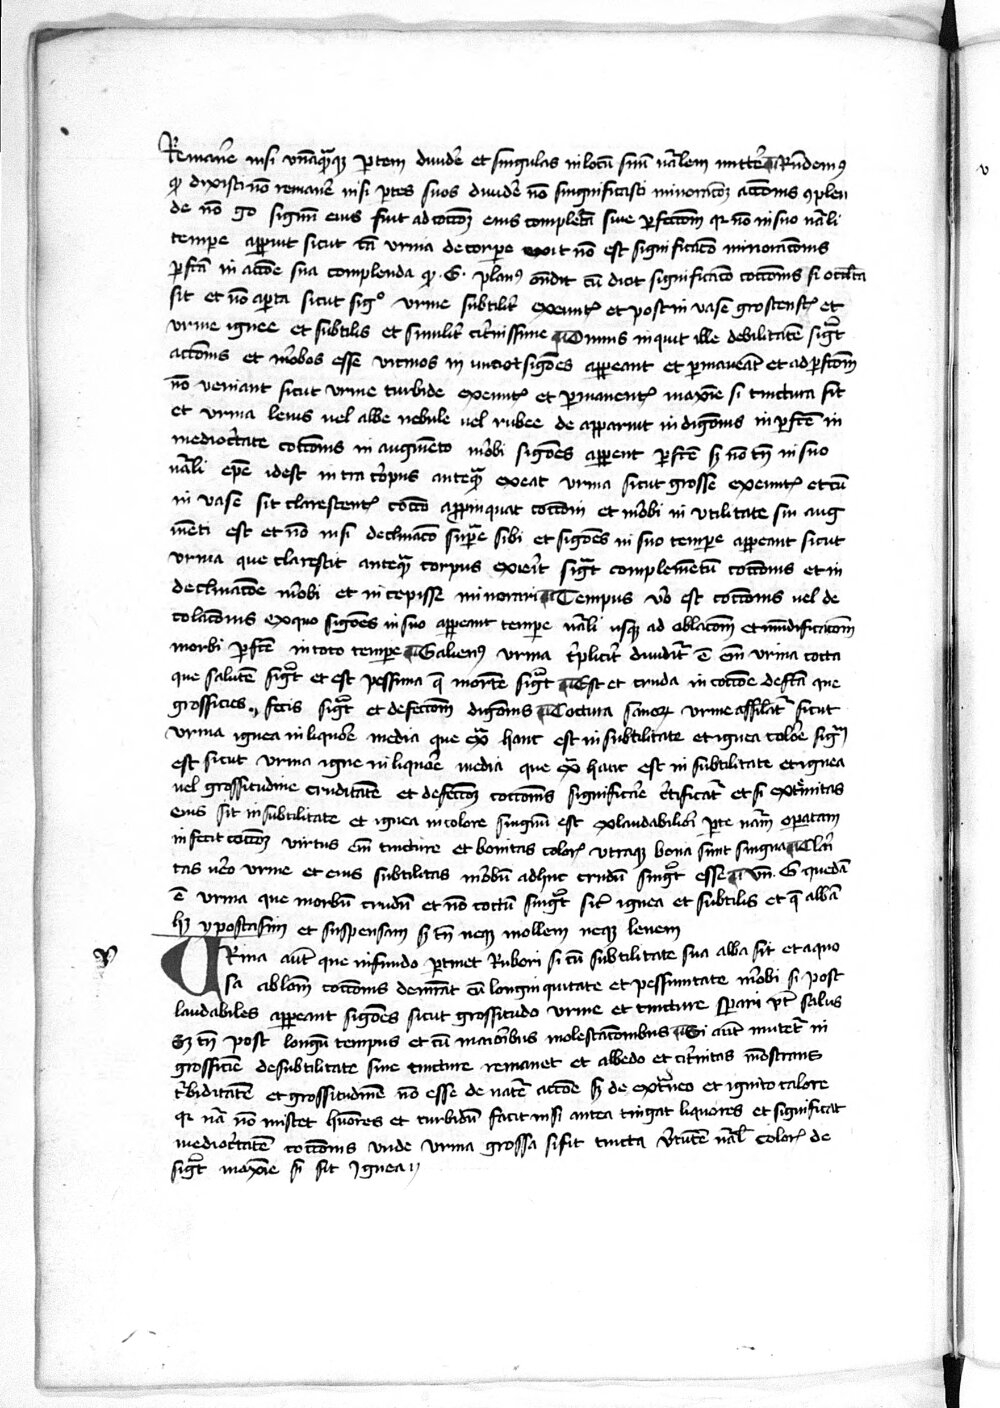 Remanē nisi vnāquāqꝫ ptem diuidē et singulas in locū suū nālem mittē Rn̄demꝰ
ꝙ dixisti nō remanē nisi ptes suos diuidē nō significasti minoratōꝫ actiōnis ꝯplen
de nō ḡo signū eius fuit ad coctōꝫ eius completā siue pfectōm qr nō in suo nāli
tempe apparuit sicut cū vrina de corpe exit nō est significatō minoratiōnis
pfctā in actiōe sua complenda ꝙ .G. planꝰ ondit cū dicit significatō coctiōnis si occulta
sit et nō aperta sicut sigº vrine subtilit exeuntꝭ et post in vase grossescentꝭ et
vrine ignee et subtilis et similit citrinissime Omnis inquit ille debilitatē sigt
actiōnis et mōbos esse vicinos in sigōes appeant et pmaneāt et ad pfectōm
nō veniant sicut vrine turbide exeuntꝭ et pmanentꝭ maxīe si tinctura sit
et vrina leuis uel albe nebule uel rubee de apparuit indigōnis in pfctē in
mediocritate coctiōnis in augmēto mōbi sigōes apparent pfctē sꝫ nō tn̄ in suo
nāli tpe idest intra corpus anteqꝫ exeat vrina sicut grosse exeuntꝭ et cū
in vase sit clarescentꝭ coctō appinquat coctiōni et mōbi in vtilitate sui aug
mēti est et nō nisi declinatō supē sibi et sigōes in suo tempe appeant sicut
vrina que clarescit anteqꝫ corpus exierit sigt complemētū coctiōnis et in
declinatōe mōbi et incepisse minorari Tempus vo est coctiōnis uel de
colatiōnis ex quo sigōes in suo appeant tempe nāli usqꝫ ad oblatiōm et mūdificatōm
morbi pfctē in toto tempe Galienꝰ vrina triplicit diuidit ē em vrina cocta
que salutē sigt et est pessima q̄ mortē sigt Est et cruda in coctiōe defcta que
grossicies fecis sigt et defectōm digōnis Coctura sanoꝝ vrine assilat sicut
vrina ignea in liquōre media que hanc est in subtilitate et ignea colōre sigt
est sicut vrina igne in liquōre media que hanc est in subtilitate et ignea
uel grossitudine cruditatē et defectōꝫ coctiōnis significare certificat et si extmitas
eius sit in subtilitate et ignea in colore singnū est ex laudabiliori pte nām opatam
infecit coctōꝫ virtus em tincture et bonitas colorꝭ vtraqꝫ bona sunt singna Clari
tas uero vrine et eius subtilitas mōbū adhuc crudū singt esse vn̄ G quedā
ē vrina que morbū crudū et nō coctū singt sic ignea et subtilis et q̄ albā
hꝫ ypostasim et suspensam sꝫ tn̄ neqꝫ mollem neqꝫ leuem
v
VRina aut̄ que in fundo ptinet rubori si cū subtilitate sua alba sit et aquo
sa ablatōm coctiōnis demrat cū longinquitate et pessimitate mōbi si post
laudabiles appeant sigōes sicut grossitudo vrine et tincture sperari pōt salus
Sꝫ tn̄ post longū tempus et cū maioribus molestatiōnibus Si aut mutet in
grossiciē de subtilitate sine tincture remanet et albedo et citrinitas mōstrans
turbiditatē et grossitudinē nō esse de natē actiōe sꝫ de extneo et ignito calore
qr nā nō miscet humores et turbidū facit nisi antea tingat liquores et significat
mediocritatē coctiōnis vnde vrina grossa si sit tincta vtutē nāl colorꝭ de
sigt maxīe si sit ignea